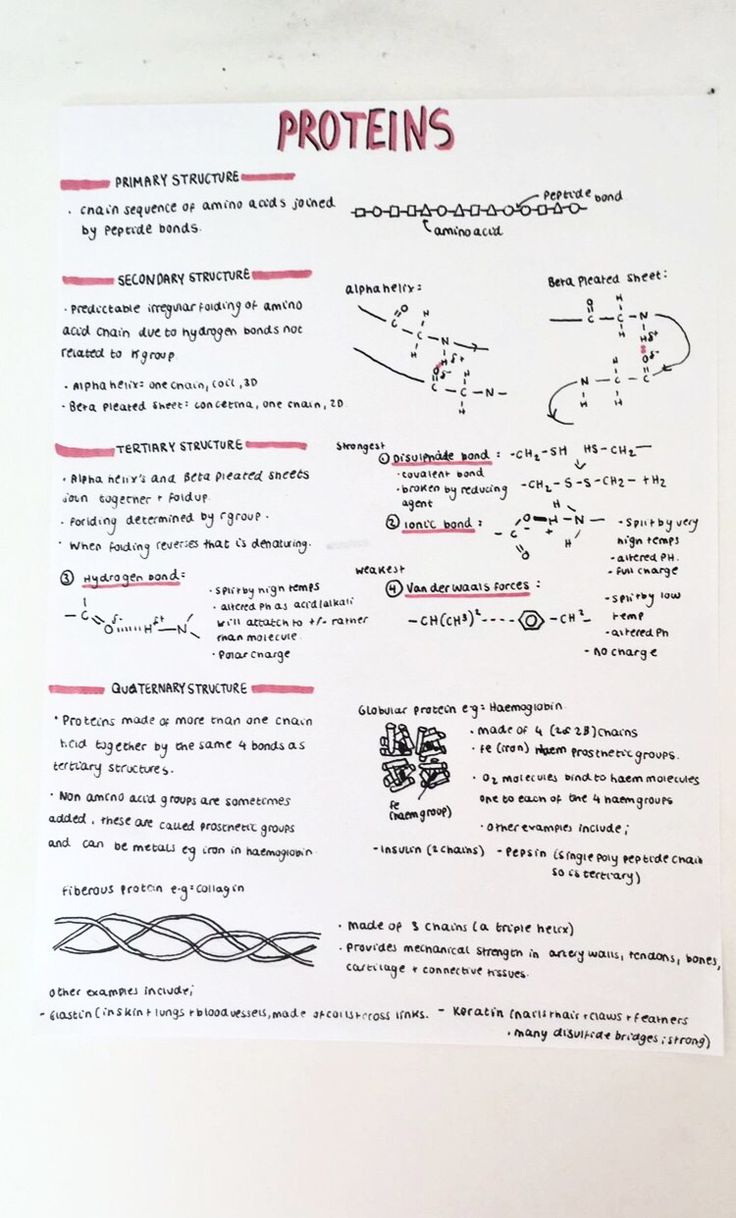 PROTEINS
PRIMARY STRUCTURE
· chain sequence of amino acids joined
by peptide bonds.
peptide bond
amino acid
SECONDARY STRUCTURE
· Predictable irregular folding of amino
acid chain due to hydrogen bonds not
related to R group.
· Alpha helix: one chain, coil, 3D
· Beta Pleated Sheet: concetina, one chain, 2D
alpha helix:
O
C
H
C
N
H
H δ+
O δ-
H
C
C
N
H
Beta Pleated Sheet:
O
C
H
C
N
H
H δ+
H
O δ-
N
C
C
H
H
TERTIARY STRUCTURE
· Alpha helix's and Beta Pleated sheets
join together + fold up.
· Forlding determined by r group.
· When folding reverses that is denaturing.
Strongest
① Disulphide bond: -CH₂-SH HS-CH₂-
· covalent bond
· broken by reducing
agent
-CH₂-S-S-CH₂- + H₂
② Ionic bond:
C
O
O⁻
H
H
N
+
H
- Split by very
high temps
- altered PH.
- full charge
③ Hydrogen bond:
- C
O δ- H δ+ - N
· split by high temps
· altered Ph as acid/alkali
will attatch to +/- rather
than molecule.
· Polar charge
weakest
④ Van der Waals forces:
-CH(CH³)² ---- -CH²-
- split by low
temp
- altered Ph
- no charge
QUATERNARY STRUCTURE
· Proteins made of more than one chain
held together by the same 4 bonds as
tertiary structures.
· Non amino acid groups are sometimes
added, these are called prosthetic groups
and can be metals eg iron in haemoglobin.
Globular protein e.g: Haemoglobin
Fe
(haem group)
· made of 4 (2α 2B) chains
· Fe (iron) haem prosthetic groups.
· O₂ molecules bind to haem molecules
one to each of the 4 haem groups
· other examples include;
- Insulin (2 chains) - Pepsin (single poly peptide chain
so is tertiary)
Fiberous protein e.g: collagin
· Made of 3 chains (a triple helix)
· Provides mechanical strength in artery walls, tendons, bones,
cartilage + connective tissues.
other examples include;
- Elastin (in skin + lungs + blood vessels, made of coils + cross links. - Keratin (nails + hair + claws + feathers
· many disulfide bridges; strong)